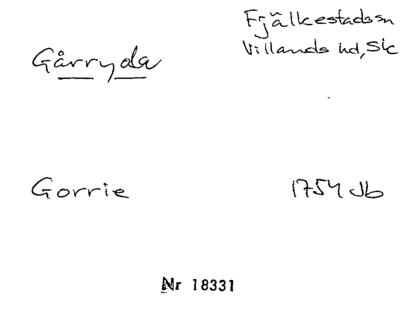 Fjälkestadssn
Villands hd, Sk
Gårryda
Gorrie
1754 Jb
Nr 18331